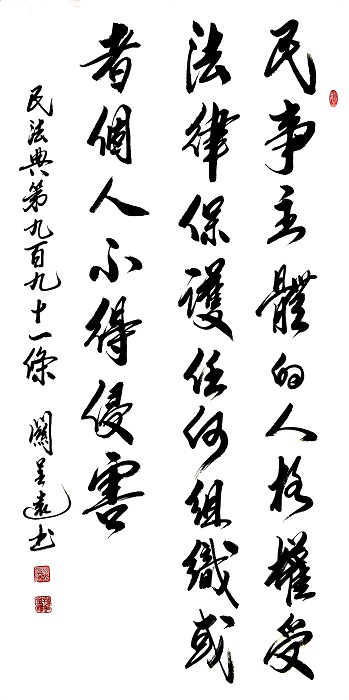 民事主體的人格權受
法律保護任何組織或
者個人不得侵害
民法典第九百九十一條 闞吳遠書